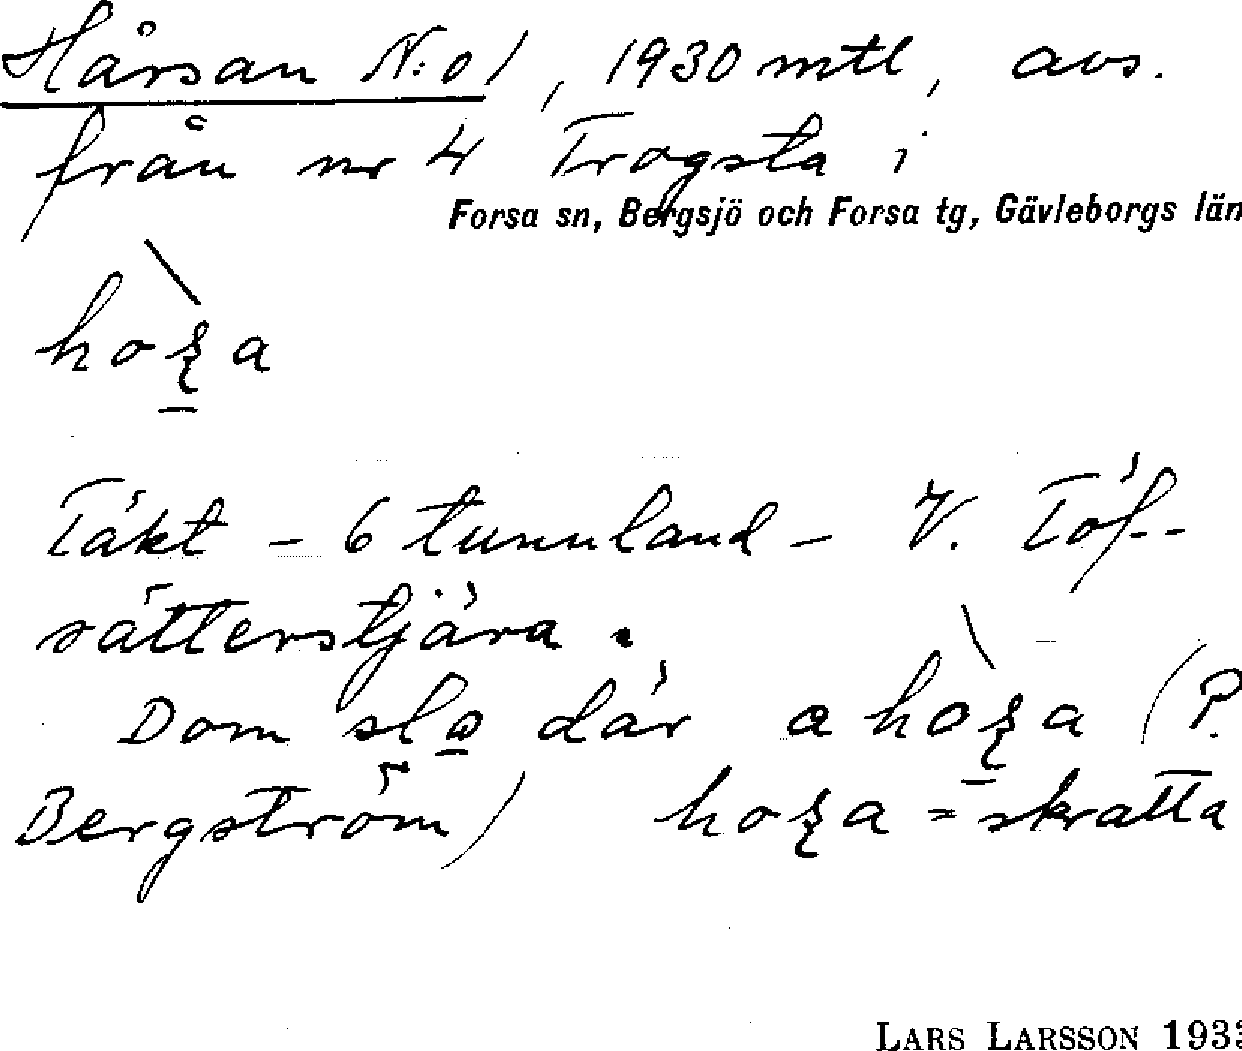 Hårsan N:o 1, 1930 mtl, avs.
från nr 4 Trogsta i
Forsa sn, Bergsjö och Forsa tg, Gävleborgs län
Täkt – 6 tunnland – V. Töf-
sätterstjära.
Dom slɷ där a (P.
Bergström) = skratta
LARS LARSSON 193